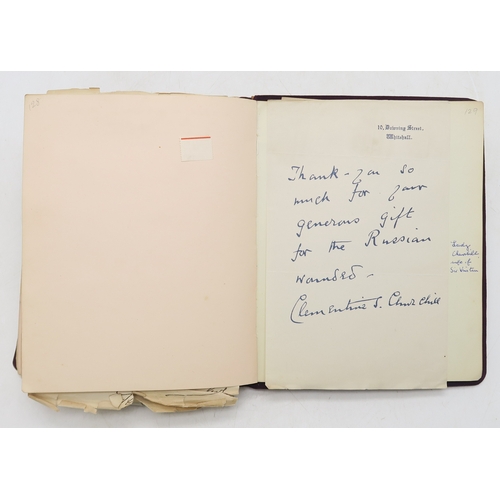 123
10, Downing Street,
Whitehall.
Thank-you so
much for your
generous gift
for the Russian
wounded -
Clementine S. Churchill
Lady
Churchill
wife of
Sir Winston